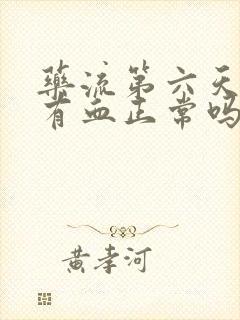 药流第六天
有血正常吗
黄孝河